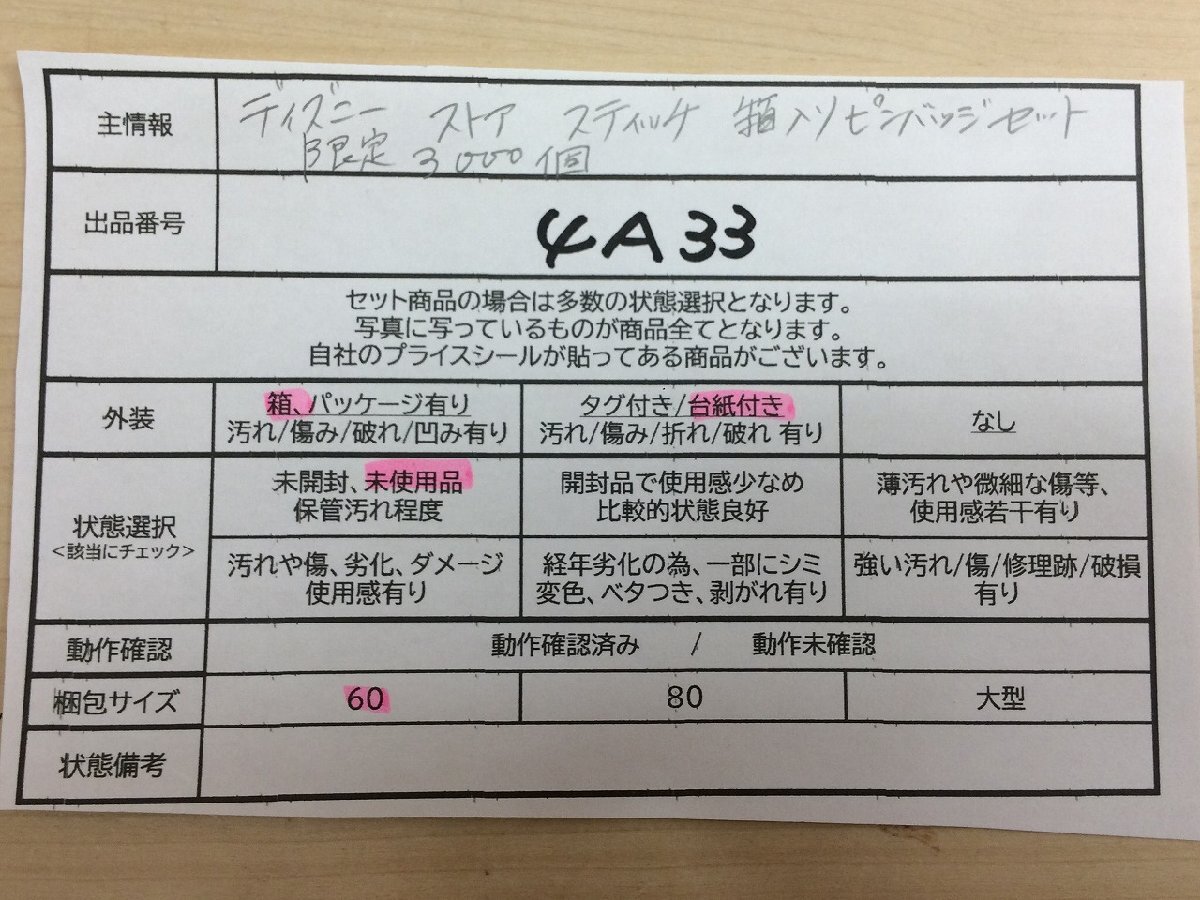 主情報
ディズニー ストア スティッチ 箱入りピンバッジセット
限定 3000個
出品番号
4A33
セット商品の場合は多数の状態選択となります。
写真に写っているものが商品全てとなります。
自社のプライスシールが貼ってある商品がございます。
外装
箱、パッケージ有り
汚れ/傷み/破れ/凹み有り
タグ付き/台紙付き
汚れ/傷み/折れ/破れ 有り
なし
状態選択
<該当にチェック>
未開封、未使用品
保管汚れ程度
開封品で使用感少なめ
比較的状態良好
薄汚れや微細な傷等、
使用感若干有り
汚れや傷、劣化、ダメージ
使用感有り
経年劣化の為、一部にシミ
変色、ベタつき、剥がれ有り
強い汚れ/傷/修理跡/破損
有り
動作確認
動作確認済み / 動作未確認
梱包サイズ
60
80
大型
状態備考